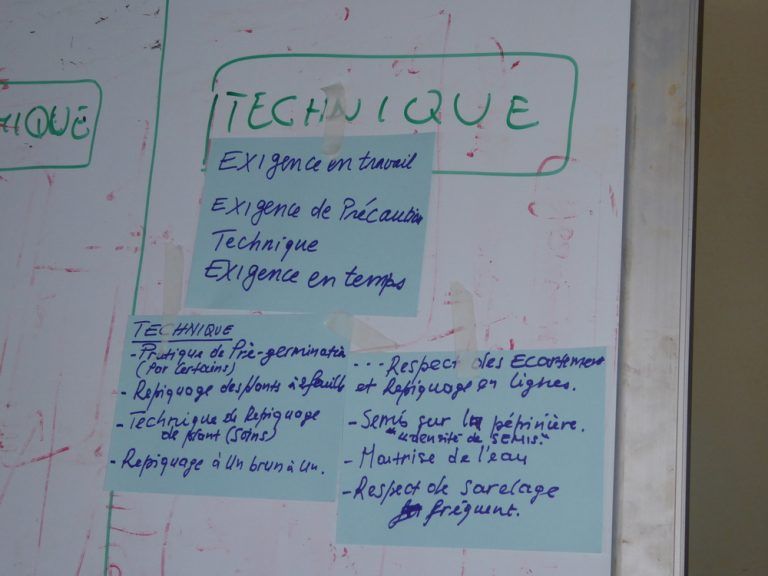 NIQUE
TECHNIQUE
EXIgence en travail
EXIgence de Précaution
Technique
EXIgence en temps
TECHNIQUE
- Pratique de Pré-germination
(Par certains)
- Repiquage des plants à 2 feuilles
- Technique de Repiquage
de plant (Soins)
- Repiquage à un brun à un.
... Respect des Ecartement
et Repiquage en lignes.
- Semis sur la pépinière.
"densité de SEMIS."
- Maitrise de l'eau
- Respect de Sarclage
fréquent.